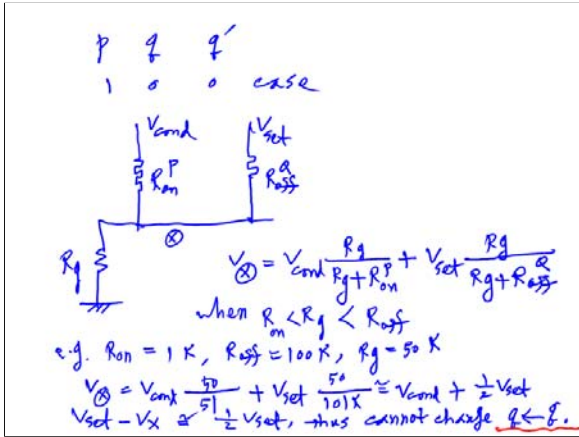 p q q′
1 0 0 case
Vcond Vset
R_on^P R_off^Q
⊗
Rg
V⊗ = Vcond Rg/(Rg+R_on^P) + Vset Rg/(Rg+R_off^Q)
when Ron < Rg < Roff
e.g. Ron = 1K, Roff = 100K, Rg = 50K
V⊗ = Vcond 50/51 + Vset 50/101K ≅ Vcond + ½ Vset
Vset − Vx ≅ ½ Vset, thus cannot change q ← q.